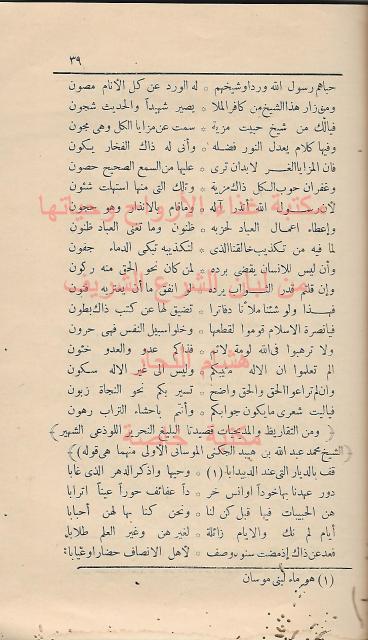 ٣٩
حباهم رسول الله ورد او شيخهم * له الورد عن كل الانام مصون
ومن زار هذا الشيخ من كافر الملا * يصير شهيداً والحديث شجون
فيالك من شيخ حبيت مزية * سمت عن مزايا الكل وهى مجون
وفيها كلام يعدل النور فضله * وأنى له ذاك الفخار يكون
فان المزايا الغر لا بد ان ترى * عليها من السمع الصحيح حصون
وغفران حوب الكل ذاك مزية * وتلك التى منها استهلت شئون
لان رسول الله أنذر آله * وما قام بالانذار وهو حجون
وإعطاء اعمال العباد لحزبه * ظنون وما تغنى العباد ظنون
لما فيه من تكذيب خالقنا الذى * لتكذيبه تبكى الدماء جفون
وأن ليس للانسان يقضى برده * لمن كان نحو الحق منه ركون
وإن قلتم قدر الثواب يرده * لو انفق ما أن يعتريه فنون
فهذا ولو شئنا ملأنا دفاترا * تضيق لها عن كتب ذاك بطون
فيا نصرة الاسلام قوموا لقطعها * وخلوا سبيل النفس فهى حرون
ولا ترهبوا فى الله لومة لائم * فذاكم عدو والعدو خئون
الم تعلموا ان الاله مثيبكم * وليس الى غير الاله سكون
وإن لم تراعوا الحق والحق واضح * تسير بكم نحو النجاة زبون
فياليت شعرى ما يكون جوابكم * وأنتم باحشاء التراب رهون
﴿ ومن التقاريظ والمديحيات قصيدتا البليغ النحرير اللوذعى الشهير ﴾
﴿ الشيخ محمد عبد الله بن هيبد الجكنى الموسانى الاولى منهما هى قوله ﴾
قف بالديار التى عند الدبيدابا (١) * وحيها واذكر الدهر الذى غابا
دور عهدنا بها خوداً اوانس خر * دا عفائف حوراً عيناً اترابا
هن الحبيبات فيها قبل كن لنا * ونحن كنا بها لهن أحبابا
أيام لم نك والايام زائلة * لغيرهن وغير العلم طلابا
فعد عن ذاك إذ مضت سنوه وصف * لاهل الانصاف حضارا وغيابا
(١) هو ماء لبنى موسان
مكتبة غذاء الأرواح وحياتها
من لبان الشرع الشريف
هشيم النجار
مكتبة خاصة